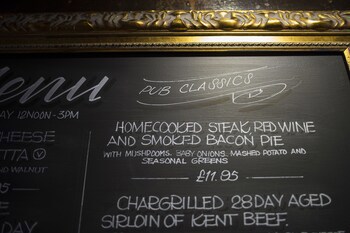 Menu
PUB CLASSICS
AY 12NOON-3PM
HOMECOOKED STEAK, RED WINE
AND SMOKED BACON PIE
WITH MUSHROOMS, BABY ONIONS, MASHED POTATO AND
SEASONAL GREENS
£11.95
CHARGRILLED 28 DAY AGED
SIRLOIN OF KENT BEEF.
CHEESE
TTA V
AND WALNUT